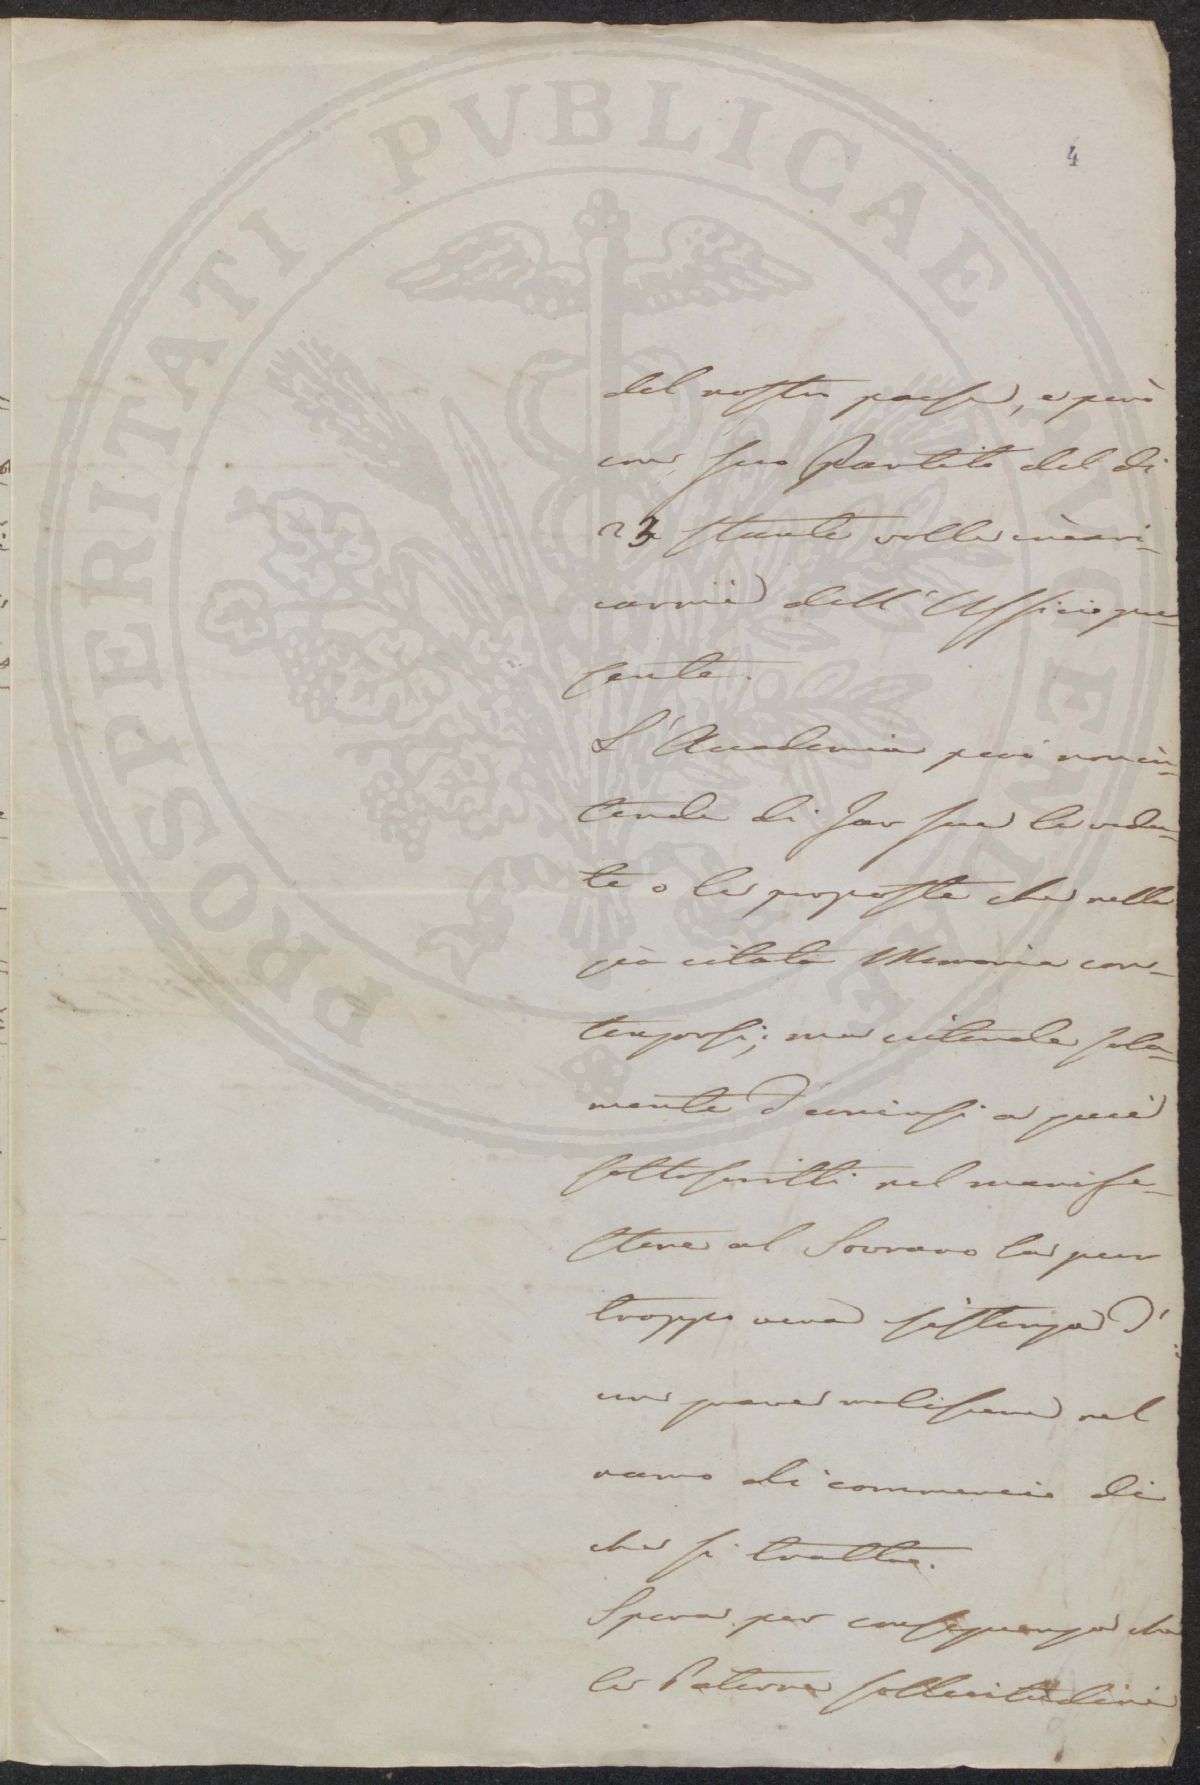 4
PROSPERITATI PVBLICAE AVGENDAE
del nostro paese, e però
con suo Partito del dì
23 stante volle incari-
carmi dell'Ufficio pre-
sente.
L'Accademia però non in-
tende di far sue le vedu-
te o le proposte che nella
già citata Memoria con-
tengonsi; ma intende sola-
mente d'unirsi a quei
sottoscritti nel manife-
stare al Sovrano la pur
troppo vera sistenza d'
un grave malessere nel
ramo di commercio di
che si tratta.
Spera per conseguenza che
le Paterne sollecitudini